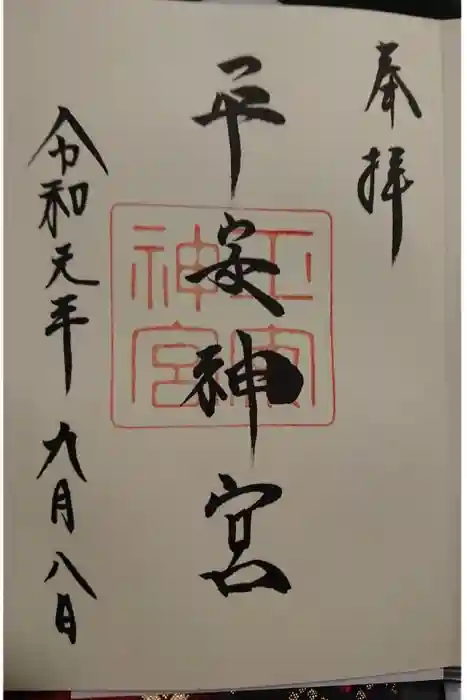 奉拝
平安神宮
令和元年九月八日
平安神宮